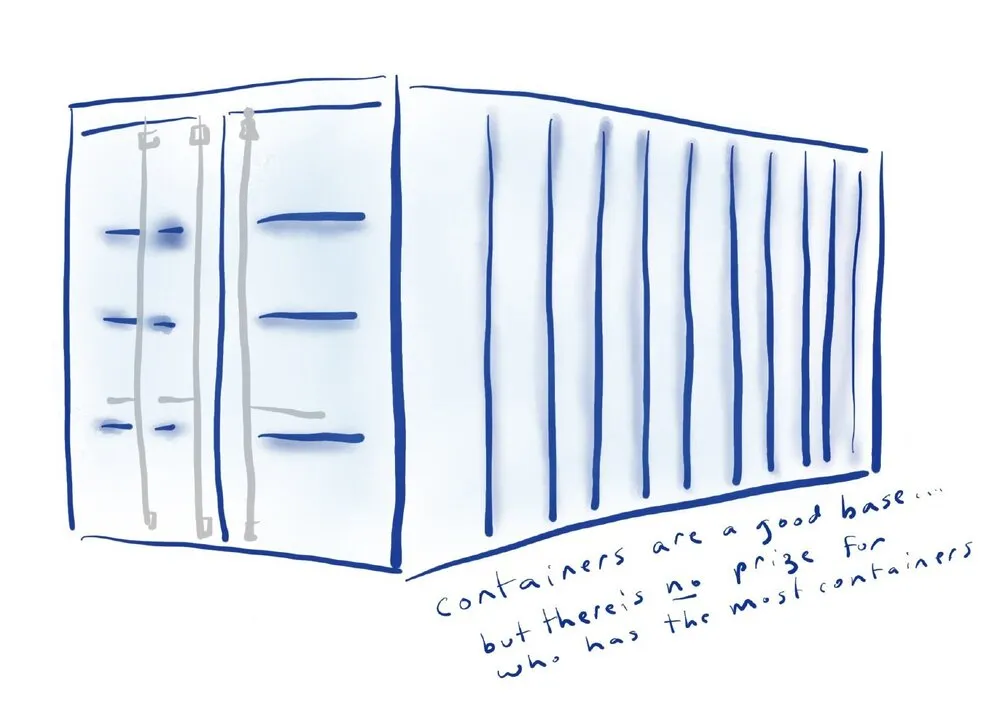 containers are a good base....
but thereis no prize for
who has the most containers